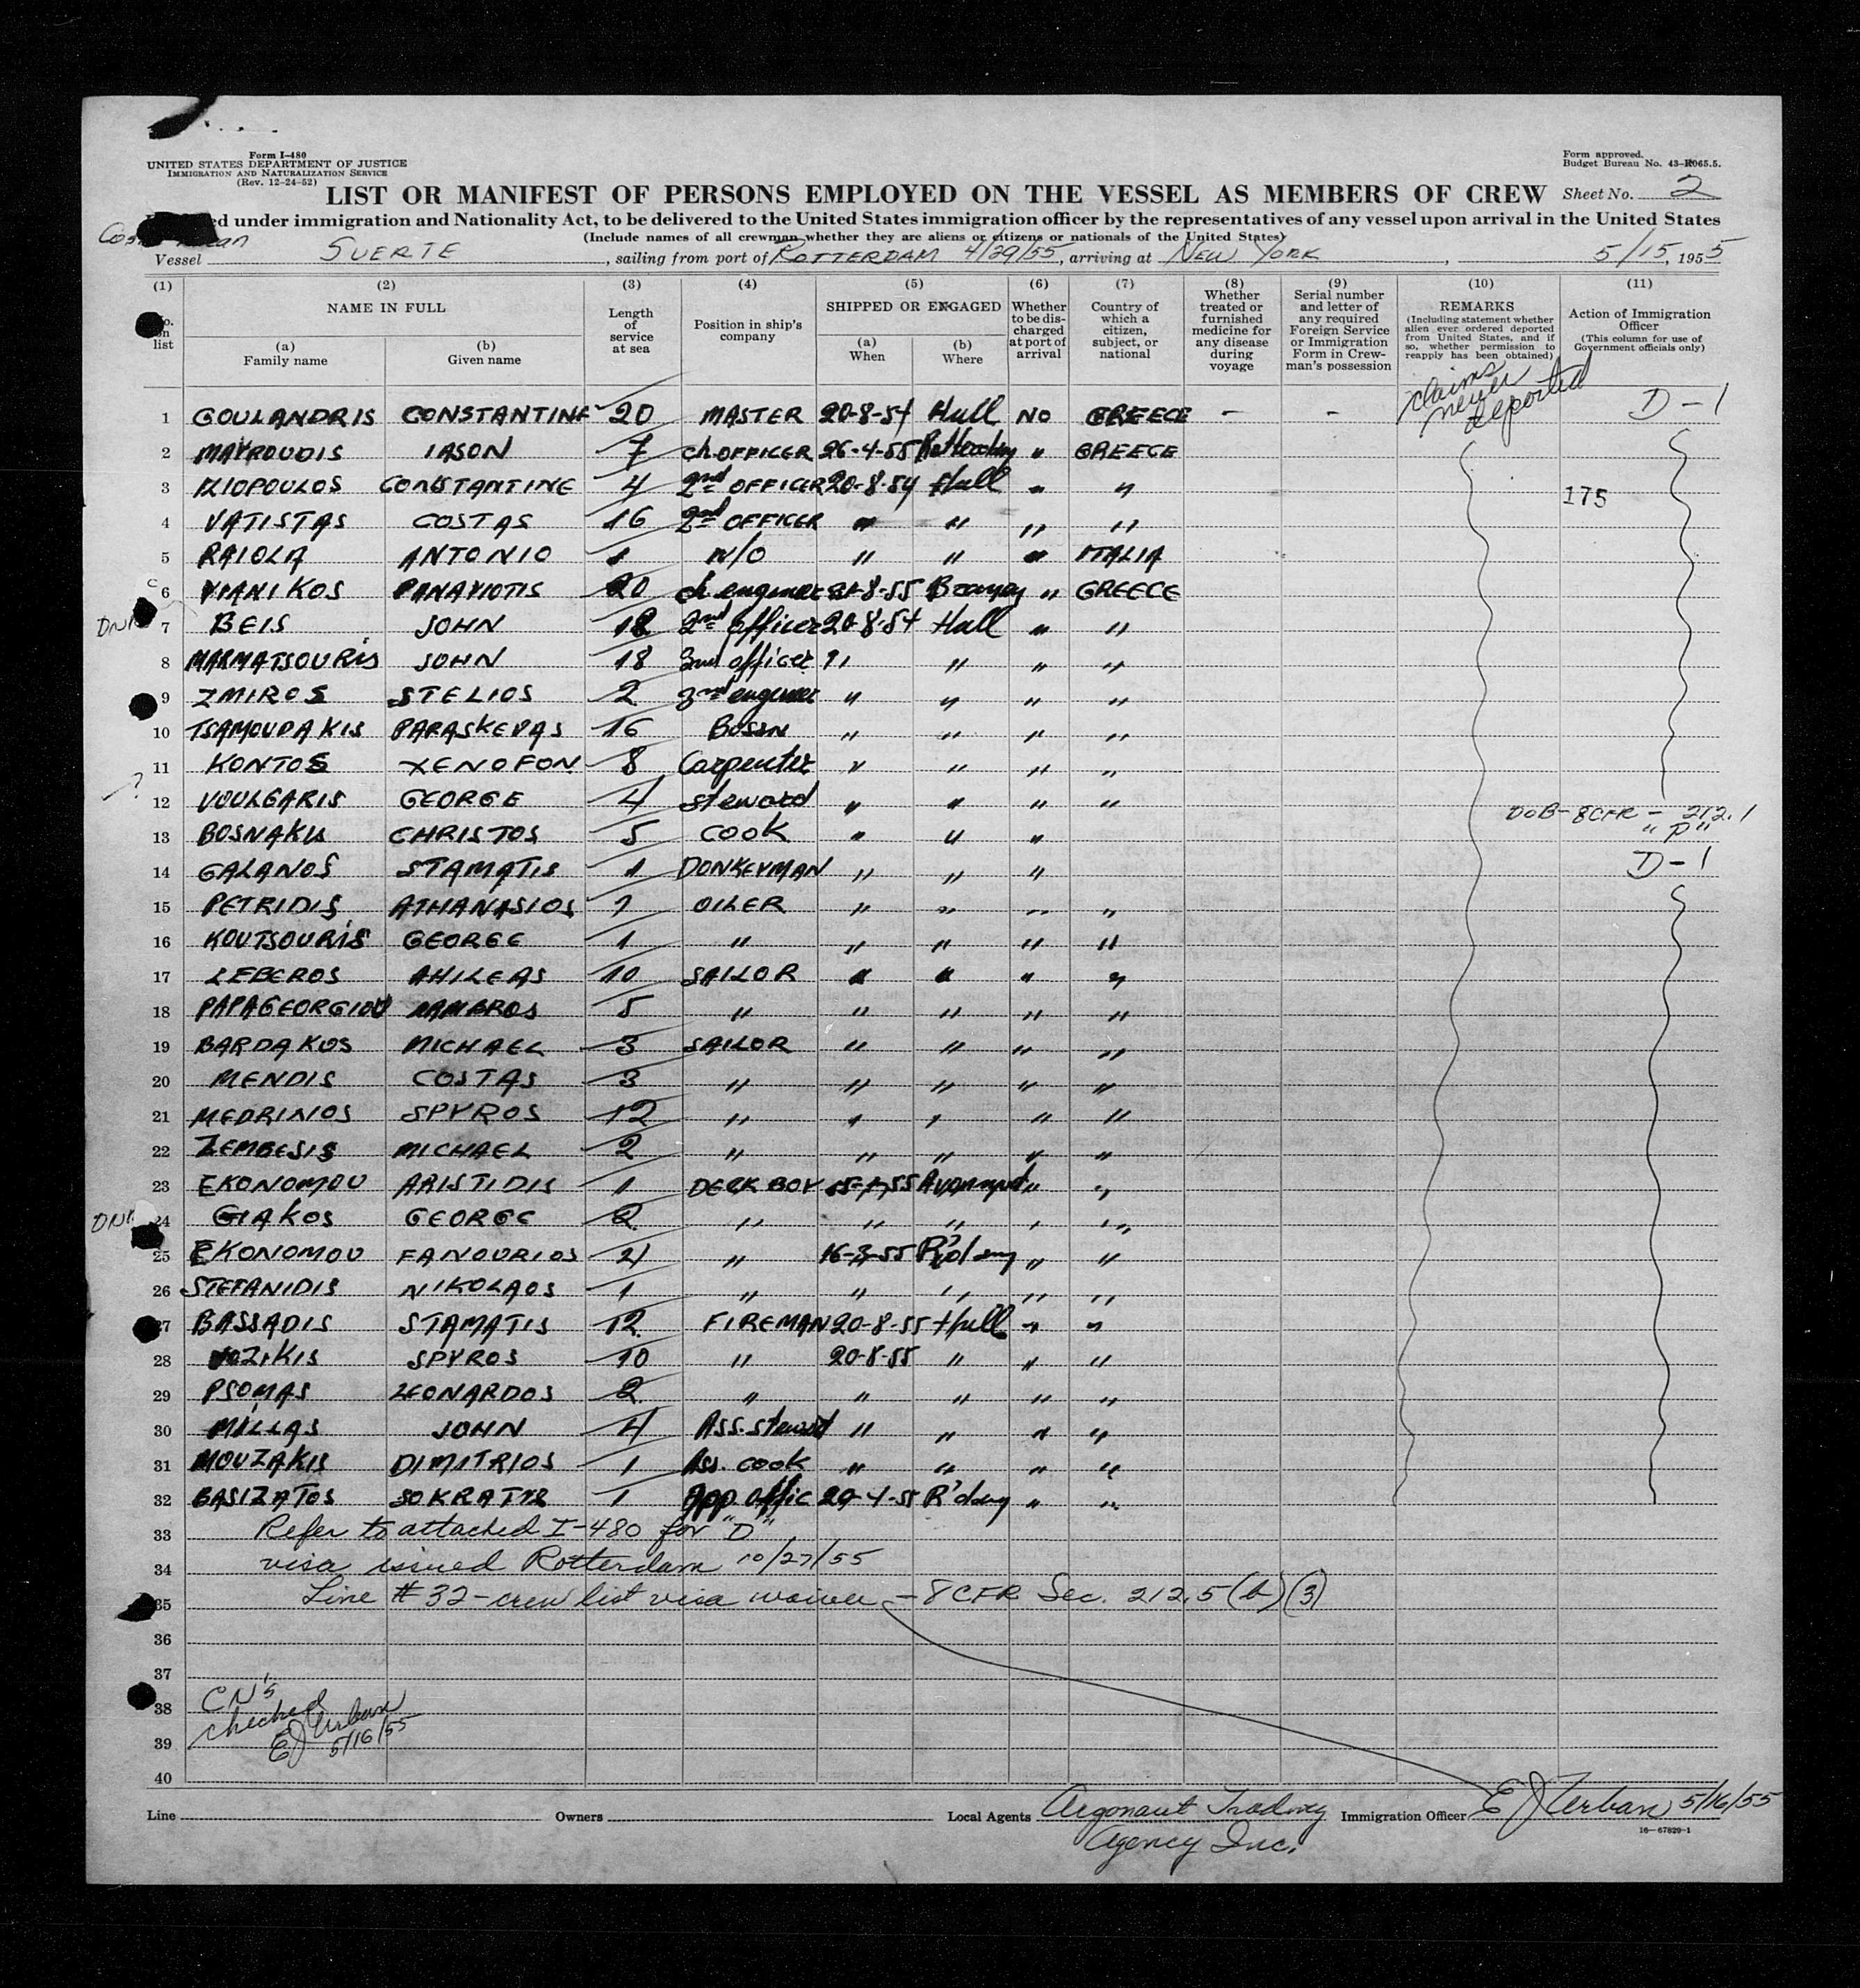 Form I-480
UNITED STATES DEPARTMENT OF JUSTICE
IMMIGRATION AND NATURALIZATION SERVICE
(Rev. 12-24-52)
Form approved.
Budget Bureau No. 43-R065.5.
LIST OR MANIFEST OF PERSONS EMPLOYED ON THE VESSEL AS MEMBERS OF CREW
Sheet No. 2
ed under immigration and Nationality Act, to be delivered to the United States immigration officer by the representatives of any vessel upon arrival in the United States
(Include names of all crewman whether they are aliens or citizens or nationals of the United States)
Vessel SUERTE, sailing from port of ROTTERDAM 4/29/55, arriving at NEW YORK, 5/15, 1955
(1) (2) (3) (4) (5) (6) (7) (8) (9) (10) (11)
No. on list
NAME IN FULL
(a) Family name
(b) Given name
Length of service at sea
Position in ship's company
SHIPPED OR ENGAGED
(a) When
(b) Where
Whether to be discharged at port of arrival
Country of which a citizen, subject, or national
Whether treated or furnished medicine for any disease during voyage
Serial number and letter of any required Foreign Service or Immigration Form in Crewman's possession
REMARKS
(Including statement whether alien ever ordered deported from United States, and if so, whether permission to reapply has been obtained)
Action of Immigration Officer
(This column for use of Government officials only)
claims never deported
1 GOULANDRIS CONSTANTINE 20 MASTER 20-8-54 Hull NO GREECE - - D-1
2 MAVROUDIS IASON 7 ch.OFFICER 26-4-55 " GREECE
3 ILIOPOULOS CONSTANTINE 4 2nd OFFICER 20-8-54 Hull " "
175
4 VATISTAS COSTAS 16 2nd OFFICER " " " "
5 RAIOLA ANTONIO 1 W/O " " " ITALIA
6 VIANIKOS PANAYIOTIS 20 ch engineer -8-55 " GREECE
7 BEIS JOHN 18 2nd officer 20-8-54 Hull " "
8 MARMATSOURIS JOHN 18 3rd officer " " " "
9 ZMIROS STELIOS 2 3rd engineer " " " "
10 TSAMOUDAKIS PARASKEVAS 16 BOSSN " " " "
11 KONTOS XENOFON 8 Carpenter " " " "
?
12 VOULGARIS GEORGE 4 steward " " " "
DOB-8CFR - 212.1
13 BOSNAKIS CHRISTOS 5 COOK " " "
" P"
14 GALANOS STAMATIS 1 DONKEYMAN " " " D-1
15 PETRIDIS ATHANASIOS 7 OILER " " " "
16 KOUTSOURIS GEORGE 1 " " " " "
17 LEBEROS AHILEAS 10 SAILOR " " " "
18 PAPAGEORGIOU LAMBROS 5 " " " " "
19 BARDAKOS MICHAEL 3 SAILOR " " " "
20 MENDIS COSTAS 3 " " " " "
21 MEDRINOS SPYROS 12 " " " " "
22 ZEMBESIS MICHAEL 2 " " " " "
23 EKONOMOU ARISTIDIS 1 DECK BOY " "
24 GIAKOS GEORGE 2 " " " " "
25 EKONOMOU FANOURIOS 21 " 16-3-55 " "
26 STEFANIDIS NIKOLAOS 1 " " " " "
27 BASSADIS STAMATIS 12 FIREMAN 20-8-55 Hull " "
28 VOZIKIS SPYROS 10 " 20-8-55 " " "
29 PSOMAS LEONARDOS 2 " " " " "
30 MILLAS JOHN 4 Ass. steward " " " "
31 MOUZAKIS DIMITRIOS 1 Ass. cook " " " "
32 BASIZATOS SOKRATIS 1 app. offic 29-4-55 R'dam " "
33 Refer to attached I-480 for "D"
34 visa issued Rotterdam 10/27/55
35 Line # 32 - crew list visa waiver - 8 CFR Sec. 212.5 (b) (3)
36
37
38 CN's
39 checked EJ Urban
5/16/55
40
Line Owners Local Agents Argonaut Trading Immigration Officer E J Urban 5/16/55
Agency Inc.
16—67829-1